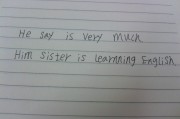 He say is very much
Him sister is learnning English